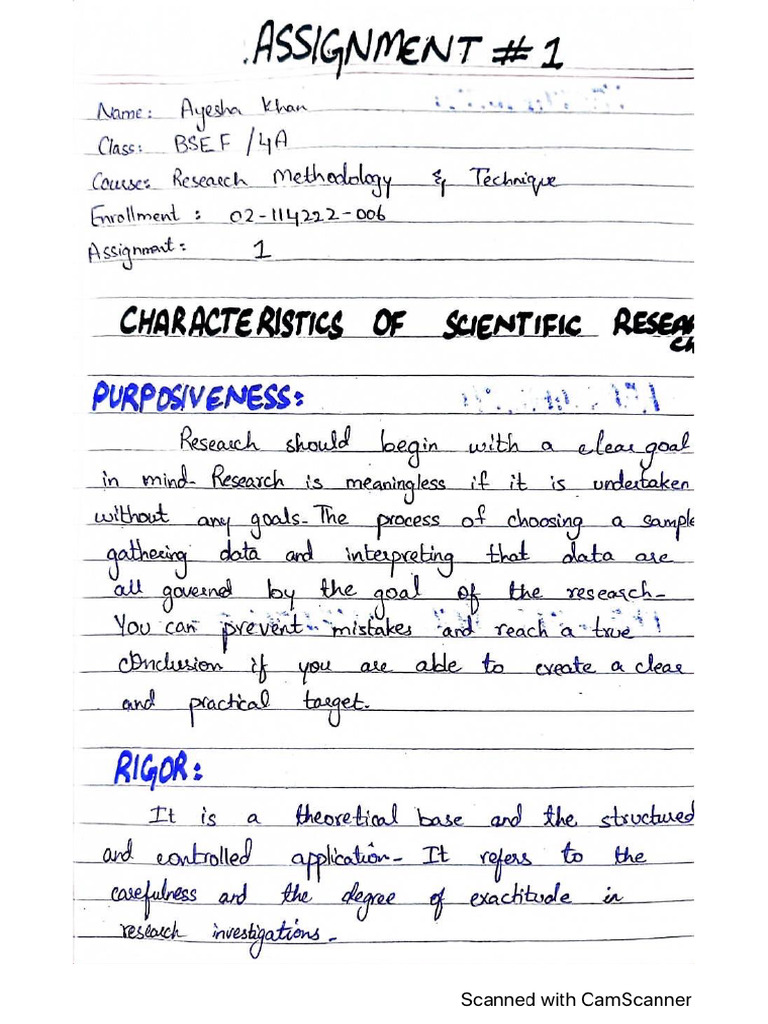 ASSIGNMENT # 1
Name: Ayesha Khan
Class: BSEF /4A
Course: Research Methodology & Technique
Enrollment : 02-114222-006
Assignment: 1
CHARACTERISTICS OF SCIENTIFIC RESEAR
CH
PURPOSIVENESS:
Research should begin with a clear goal
in mind. Research is meaningless if it is undertaken
without any goals. The process of choosing a sample
gathering data and interpreting that data are
all governed by the goal of the research.
You can prevent mistakes and reach a true
conclusion if you are able to create a clear
and practical target.
RIGOR:
It is a theoretical base and the structured
and controlled application. It refers to the
carefulness and the degree of exactitude in
research investigations.
Scanned with CamScanner